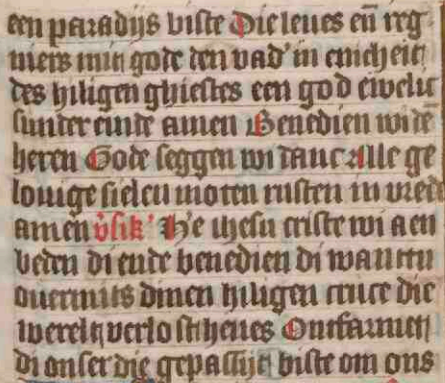 een paradijs biste Die leues eñ reg
niers mit gode den vad' in enicheit
des hiligen ghiestes een god ewelic
sunder einde amen Benedien wi dē
heren Gode seggen wi danc Alle ge
louige sielen moten rusten in vred
amen v̉sik' He ihesu criste wi aen
beden di ende benedien di want tu
ouermits dinen hiligen cruce die
werelt verlost heues Ontfarmet
di onser die gepassijt biste om ons